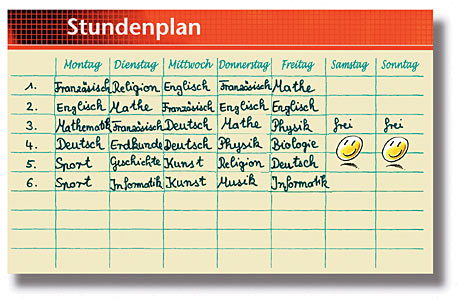 Stundenplan
Montag Dienstag Mittwoch Donnerstag Freitag Samstag Sonntag
1. Französisch Religion Englisch Französisch Mathe
2. Englisch Mathe Französisch Englisch Englisch
3. Mathematik Französisch Deutsch Mathe Physik frei frei
4. Deutsch Erdkunde Deutsch Physik Biologie
5. Sport Geschichte Kunst Religion Deutsch
6. Sport Informatik Kunst Musik Informatik